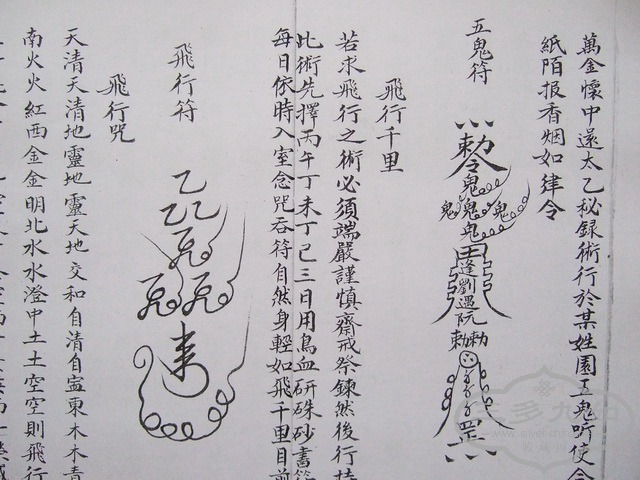 萬金懷中還太乙秘録術行於某姓園五鬼听使令
紙陌报香烟如律令
五鬼符
敕令鬼鬼鬼鬼鬼
田逢劉遇阮
敕敕
罡
飛行千里
若求飛行之術必須端嚴謹慎齋戒祭鍊然後行持
此術先擇丙午丁未丁巳三日用鳥血研硃砂書符
每日依時入室念咒吞符自然身輕如飛千里目前
飛行符
飛行咒
天清天清地靈地靈天地交和自清自寍東木木青
南火火紅西金金明北水水澄中土土空空則飛行